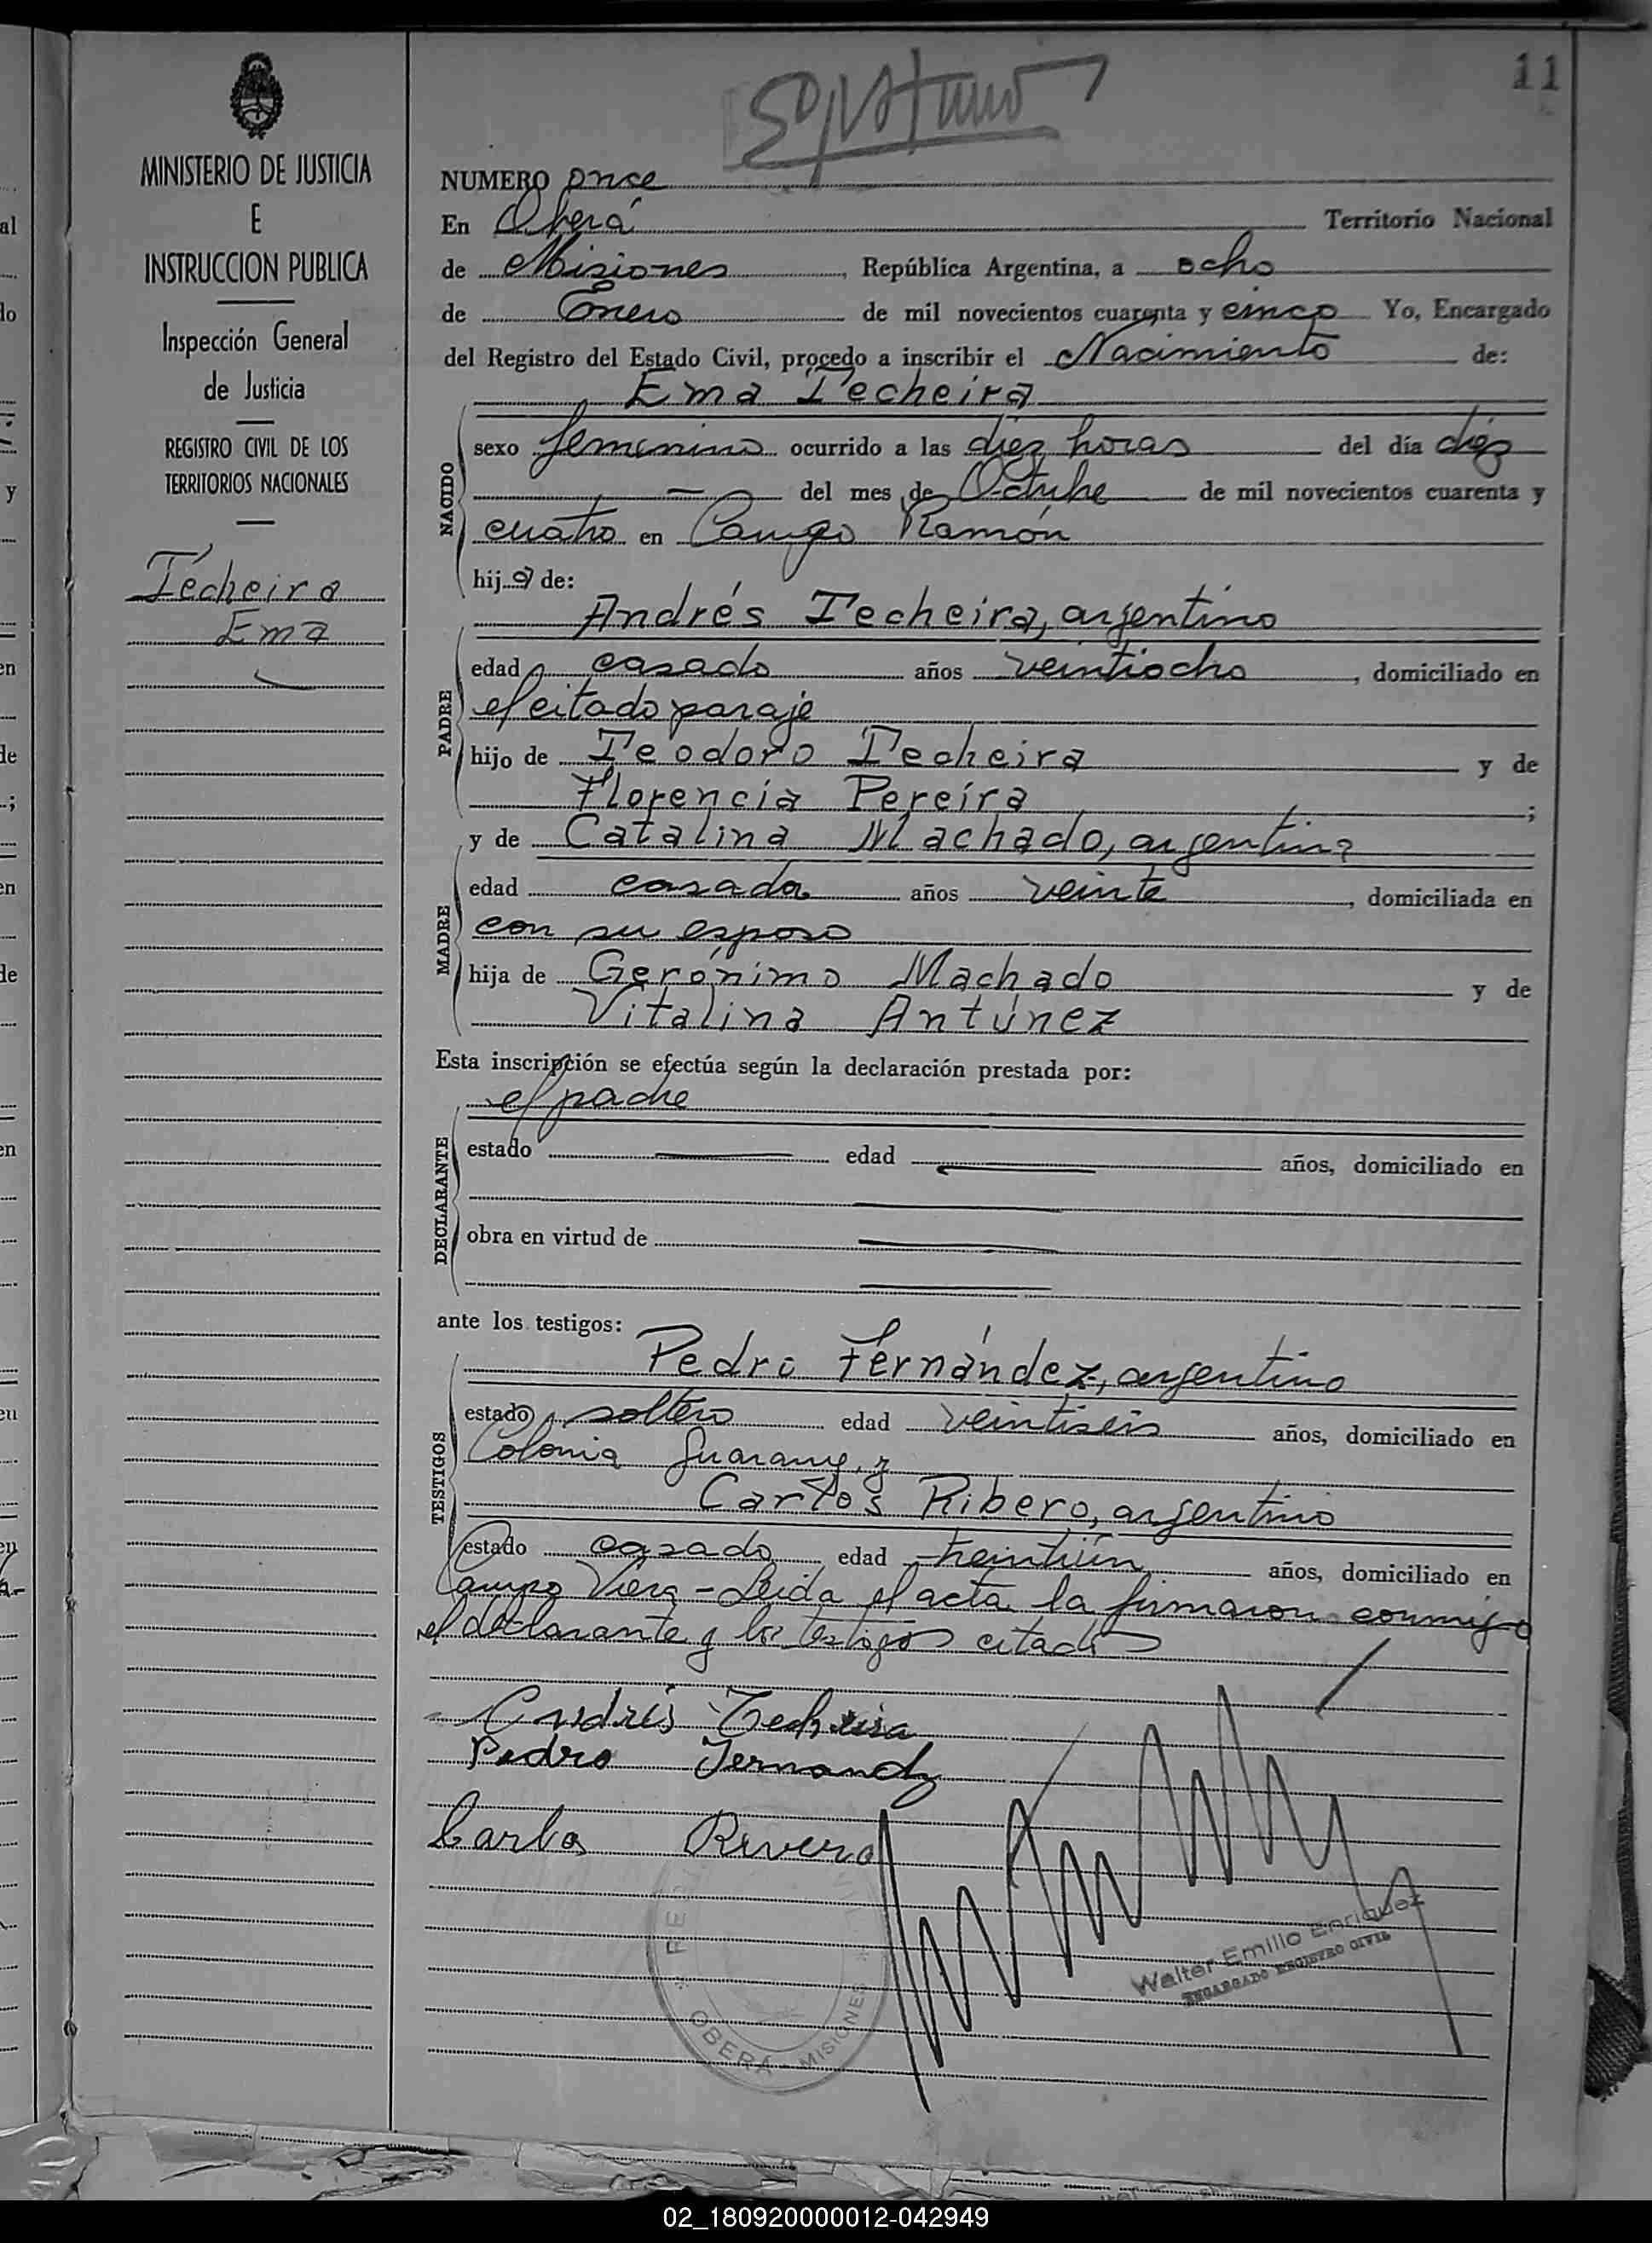 11
MINISTERIO DE JUSTICIA
E
INSTRUCCION PUBLICA
Inspección General
de Justicia
REGISTRO CIVIL DE LOS
TERRITORIOS NACIONALES
Techeira
Ema
NUMERO once
En Oberá Territorio Nacional
de Misiones, República Argentina, a ocho
de Enero de mil novecientos cuarenta y cinco Yo, Encargado
del Registro del Estado Civil, procedo a inscribir el Nacimiento de:
Ema Techeira
NACIDO
sexo femenino ocurrido a las diez horas del día diez
— del mes de Octubre de mil novecientos cuarenta y
cuatro en Campo Ramón
hija de:
PADRE
Andrés Techeira, argentino
edad casado años veintiocho, domiciliado en
el citado paraje
hijo de Teodoro Techeira y de
Florencia Pereira;
MADRE
y de Catalina Machado, argentina
edad casada años veinte, domiciliada en
con su esposo
hija de Gerónimo Machado y de
Vitalina Antúnez
Esta inscripción se efectúa según la declaración prestada por:
DECLARANTE
el padre
estado — edad — años, domiciliado en
—
obra en virtud de —
—
ante los testigos:
TESTIGOS
Pedro Fernández, argentino
estado soltero edad veintiseis años, domiciliado en
Colonia Guarany, y
Carlos Ribero, argentino
estado casado edad años, domiciliado en
Campo Viera - Leida el acta la firmaron conmigo
el declarante y los testigos citados
Andrés Techeira
Pedro Fernandz
Carlos Rivero
Walter Emilio Enriquez
ENCARGADO REGISTRO CIVIL
OBERÁ - MISIONES
02_180920000012-042949